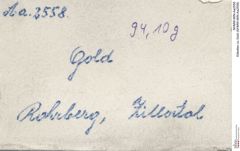 Aa. 2558.
94,10g
Gold
Rohrberg, Zillertal